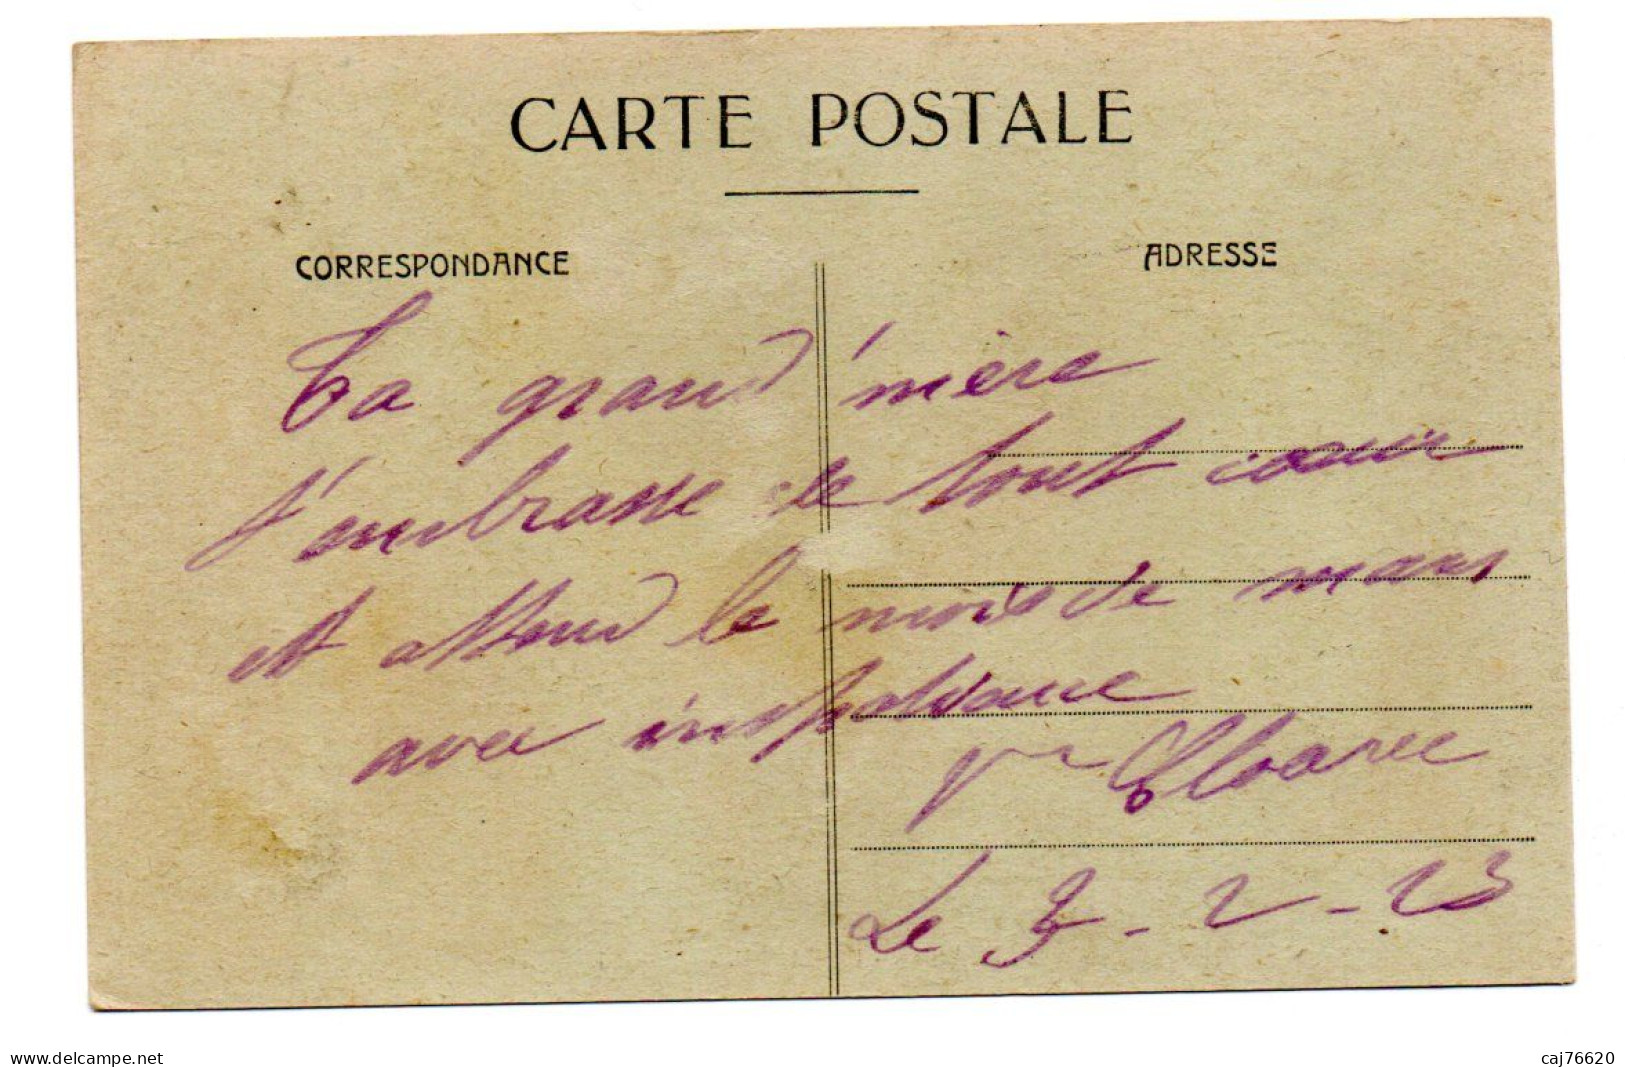 CARTE POSTALE
CORRESPONDANCE
ADRESSE
Ta grand'mère
t'embrasse de tout cœur
et attend le mois de mars
avec impatience
Vve
Le 9-2-23
www.delcampe.net
caj76620